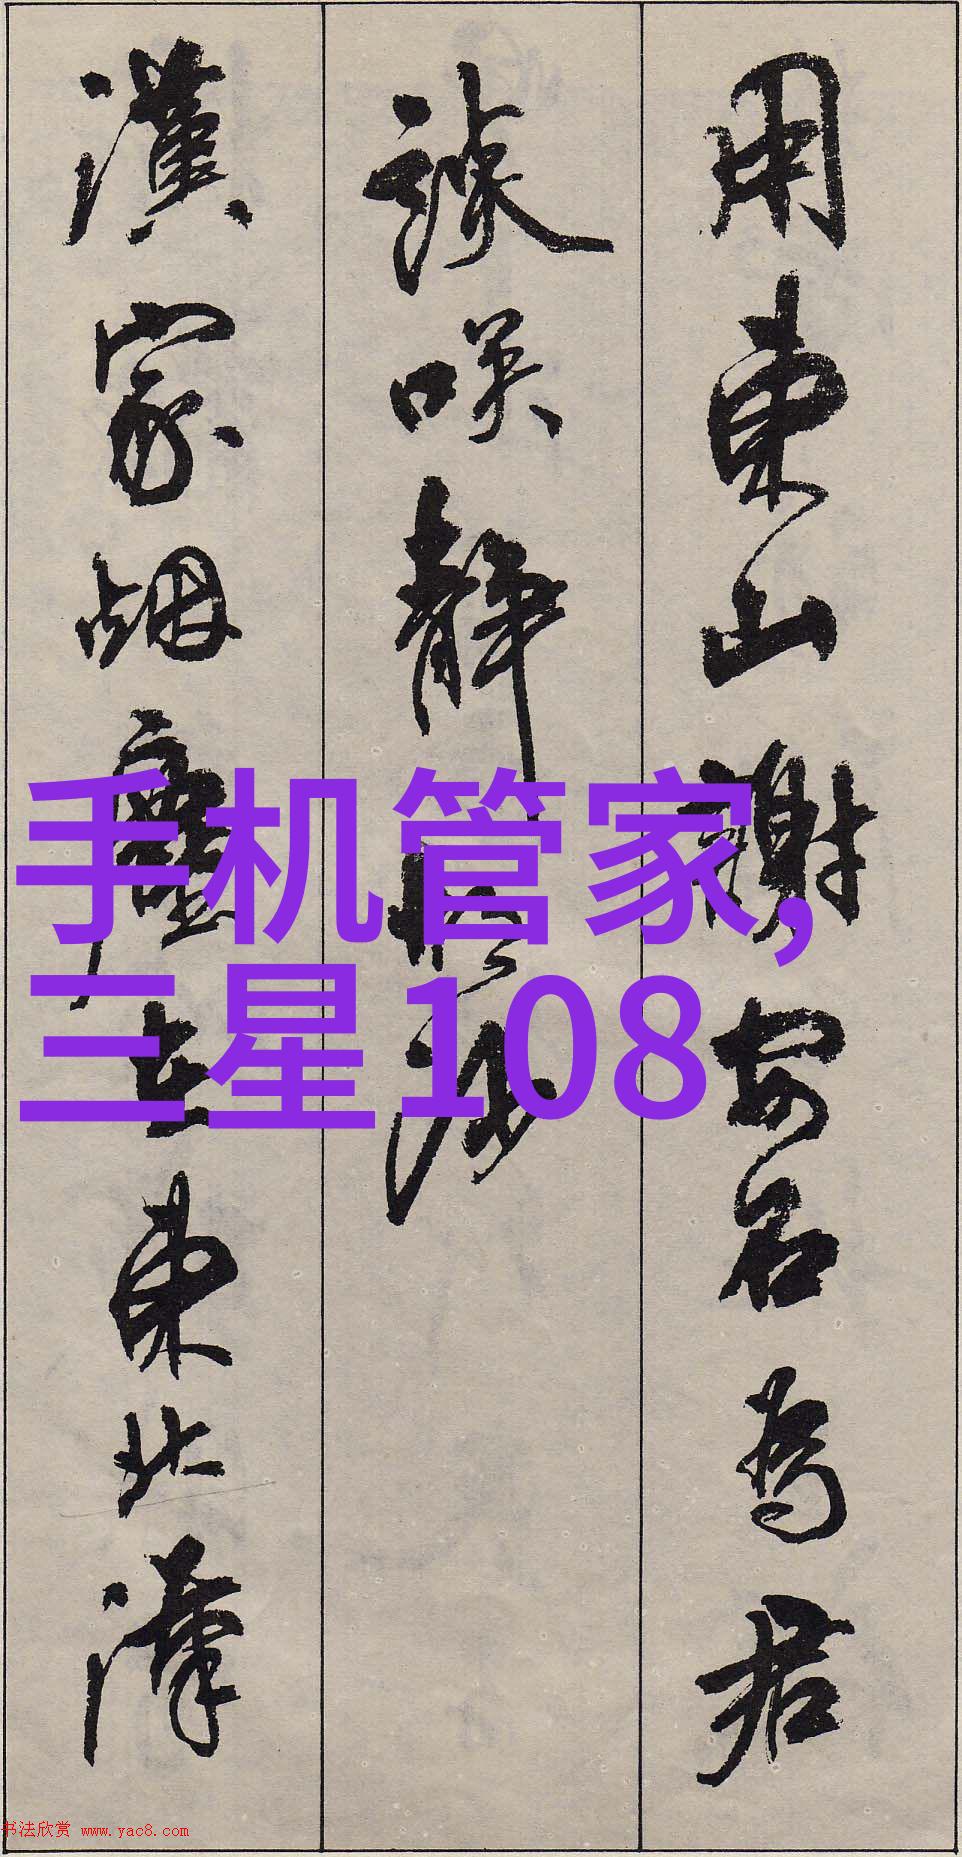 用東山謝安石為君
談咲靜胡沙
漢家烟塵在東北漢
手机管家,
三星108
书法欣赏 www.yac8.com